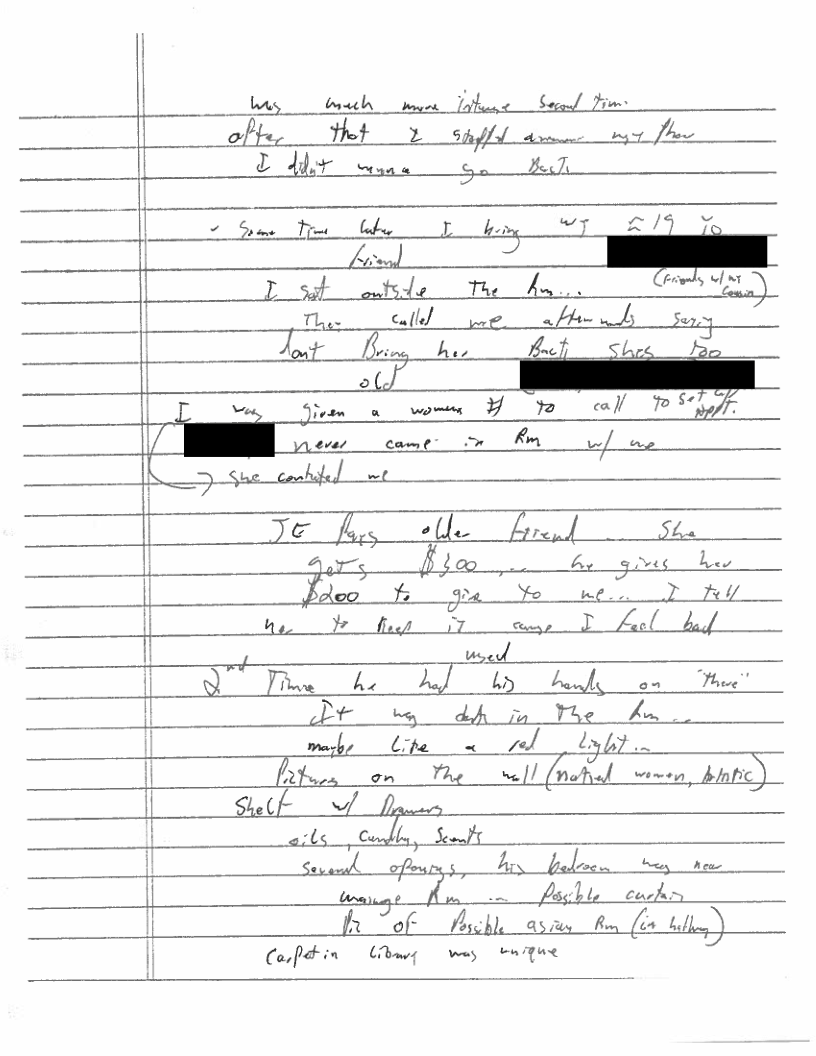 was much more intense second time.
after that I stopped answering my phone
I didn't wanna go Back
✓ Some time later I bring
friend
I sat outside the Rm... (friends w/ my Cousin)
They called me afterwards saying
dont Bring her Back shes too
old
I was given a womens # to call to set up Appt.
never came in Rm w/ me
she contacted me
JE Pays older friend .. She
gets $300 ,... he gives her
$200 to give to me... I tell
her to keep it cause I feel bad
used
2nd Time he had his hands on "there"
It was dark in the Rm...
maybe like a red light ..
Pictures on the wall (naked women, Artistic)
Shelf w/ Drawers
oils, Candles, Scents
Several openings, his bedroom was near
massage Rm ... Possible curtain
Pic of Possible asian Rm (in hallway)
Carpet in Library was unique